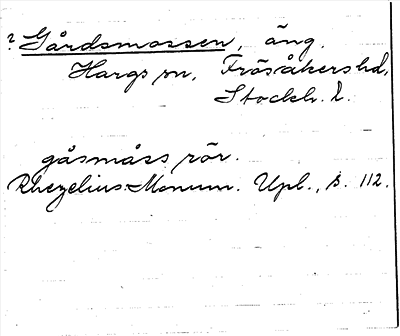 ? Gårdsmossen, äng.
Hargs sn, Frösåkers hd,
Stockh. l.
gåsmåss rör.
Rhezelius Monum. Upl., s. 112.